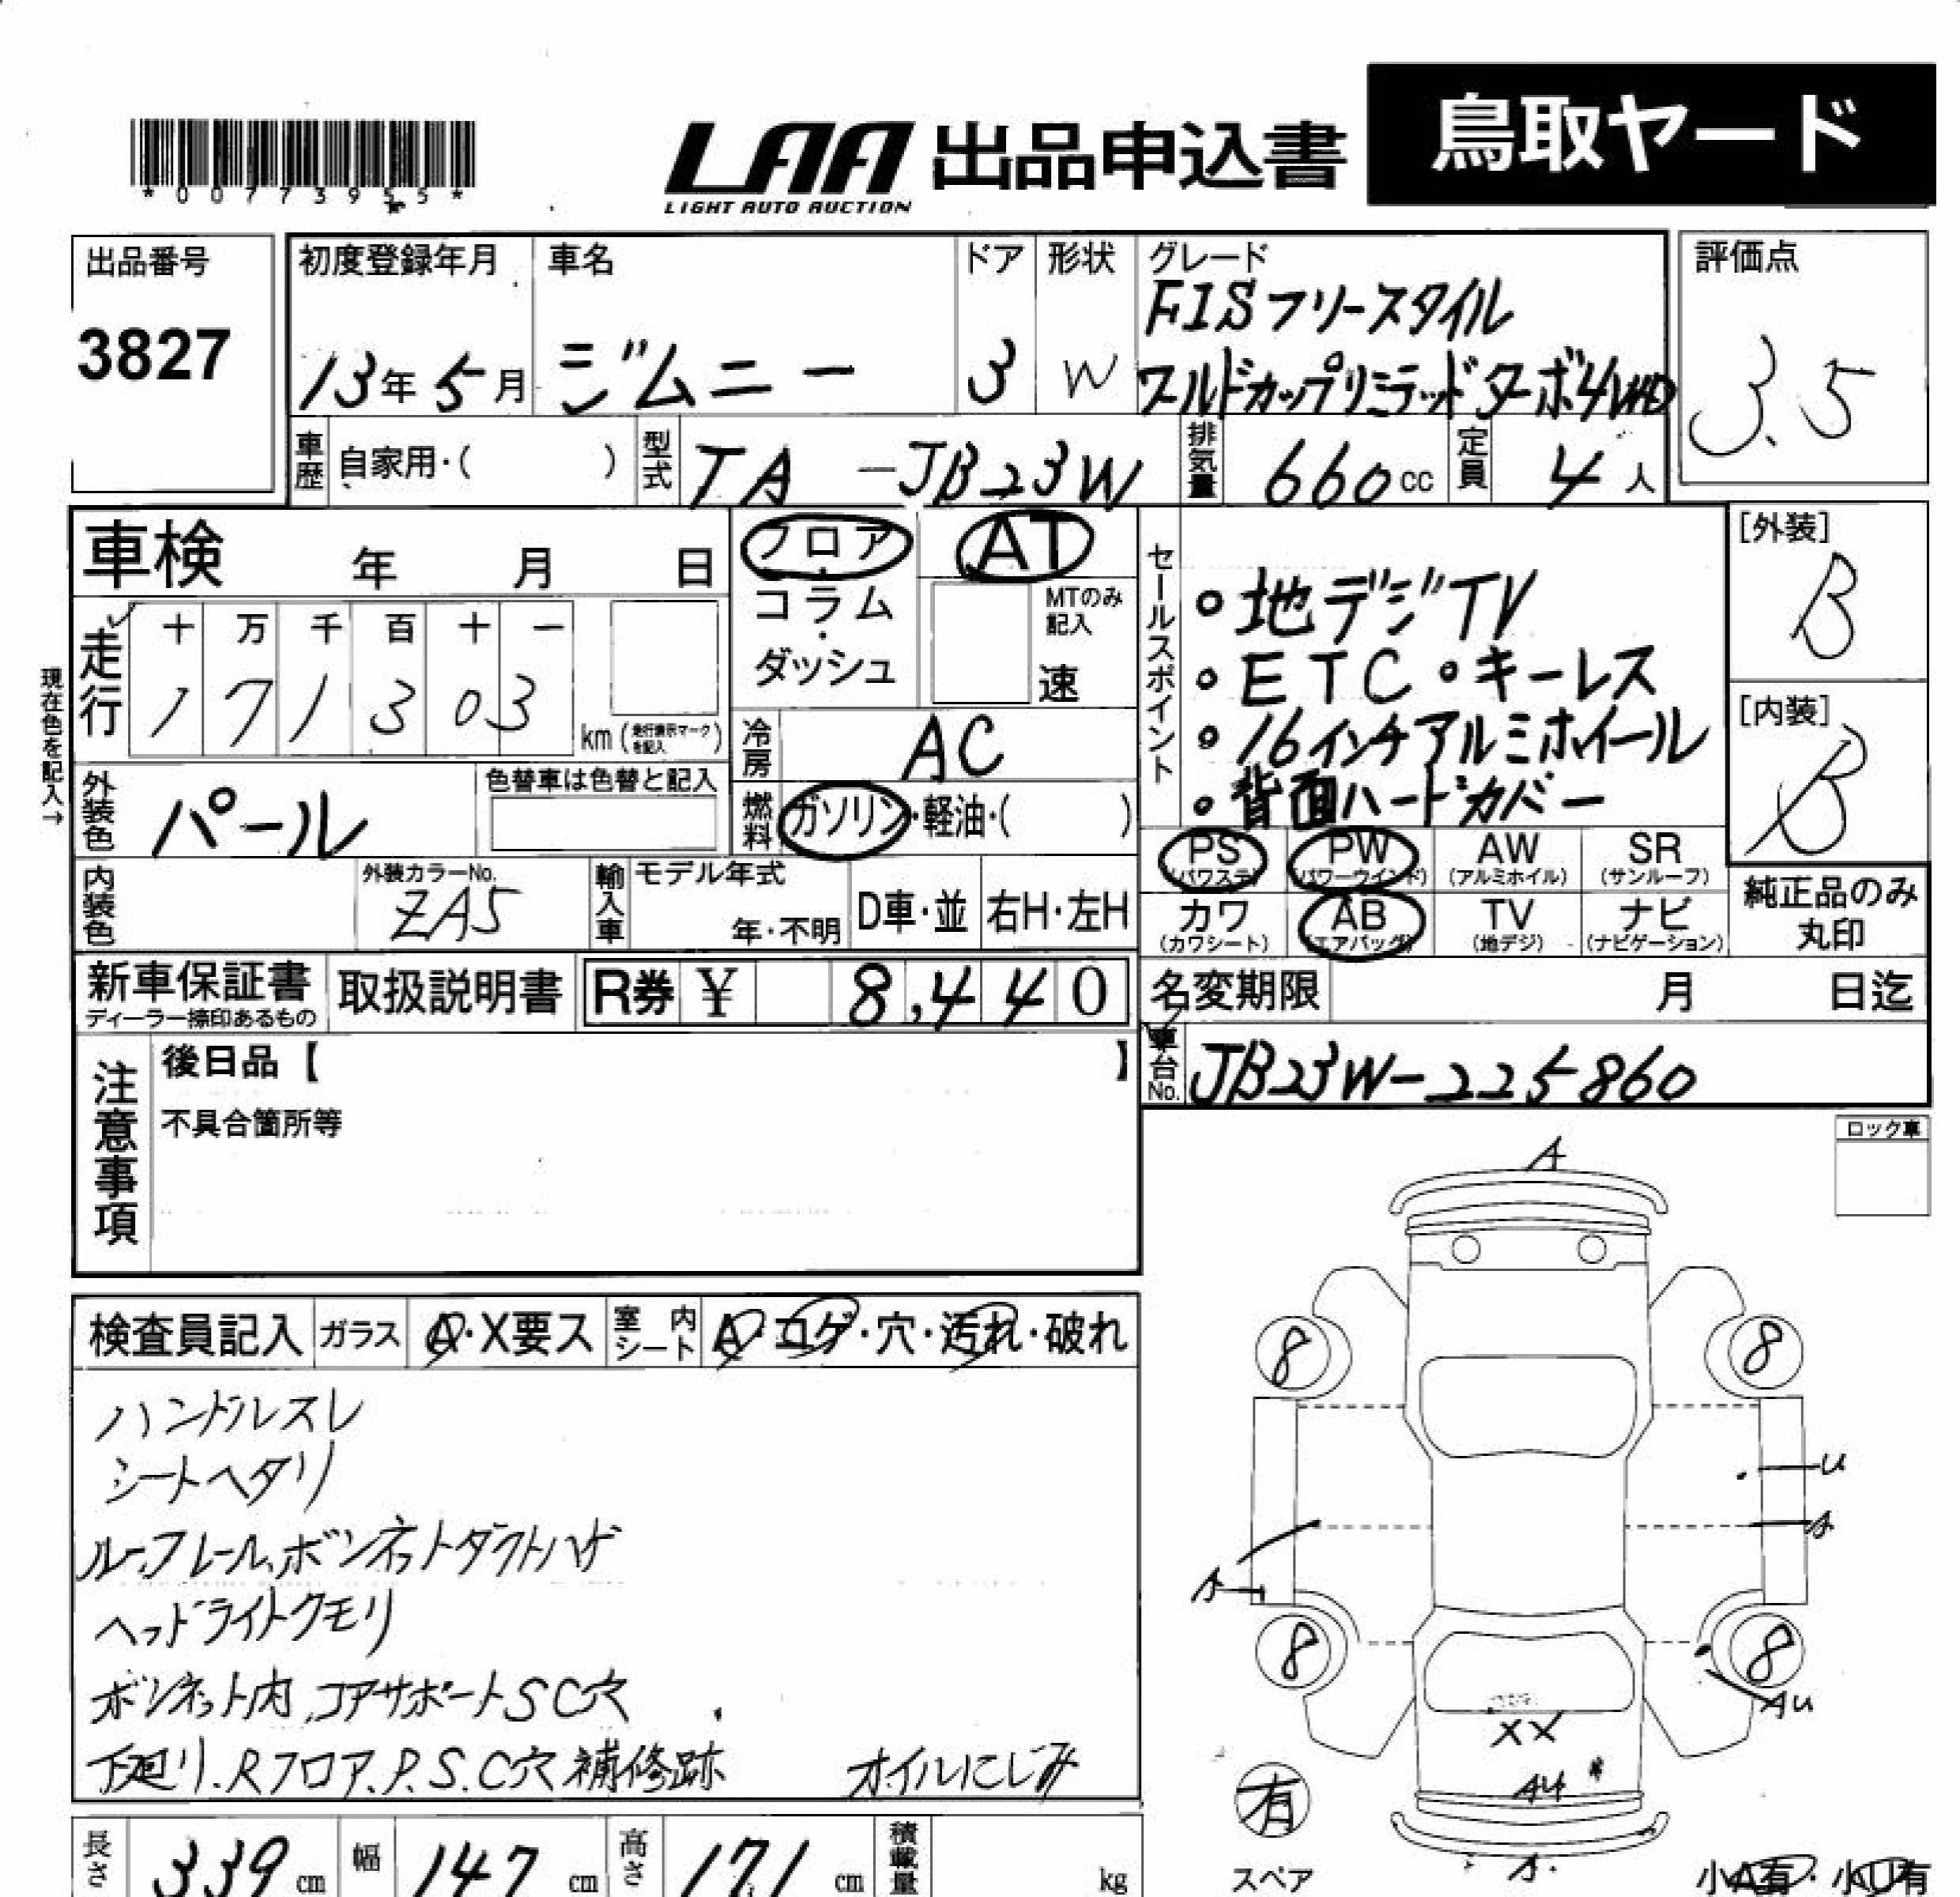 *00773955*
LAA 出品申込書 鳥取ヤード
LIGHT AUTO AUCTION
出品番号
3827
初度登録年月 車名 ドア 形状 グレード
13年 5月 ジムニー 3 W
FISフリースタイル
ワールドカップリミテッド ターボ4WD
評価点
3.5
車歴 自家用・( ) 型式 TA -JB23W 排気量 660cc 定員 4人
車検 年 月 日
フロア AT
・
コラム
・
ダッシュ
MTのみ
記入
速
セールスポイント
・地デジTV
・ETC ・キーレス
・16インチアルミホイール
・背面ハードカバー
[外装]
B
[内装]
B
現在色を記入→
走行 十 万 千 百 十 一
1 7 1 3 0 3
km (走行表示マークを記入)
冷房 AC
外装色 パール 色替車は色替と記入
燃料 ガソリン・軽油・( )
PS AW PW SR
(パワステ) (パワーウインド) (アルミホイル) (サンルーフ)
カワ AB TV ナビ
(カワシート) (エアバッグ) (地デジ) (ナビゲーション)
純正品のみ
丸印
内装色 外装カラーNo.
ZA5
輸入車 モデル年式
年・不明 D車・並 右H・左H
新車保証書 取扱説明書 R券 ¥ 8,440
ディーラー捺印あるもの
名変期限 月 日迄
車台No. JB23W-225860
注意事項
後日品【 】
不具合箇所等
ロック車
検査員記入 ガラス A・X要ス 室内シート A・コゲ・穴・汚れ・破れ
ハンドルスレ
シートヘタリ
ルーフレール、ボンネットダクトハゲ
ヘッドライトクモリ
ボンネット内、コアサポートSC穴
下廻り.Rフロア.P.S.C穴補修跡 オイルにじみ
A
8 8
U
A
A
8 8
AU
XX
AU
A
有
スペア
小A有・小U有
長さ 339cm 幅 147cm 高さ 171cm 積載量 kg